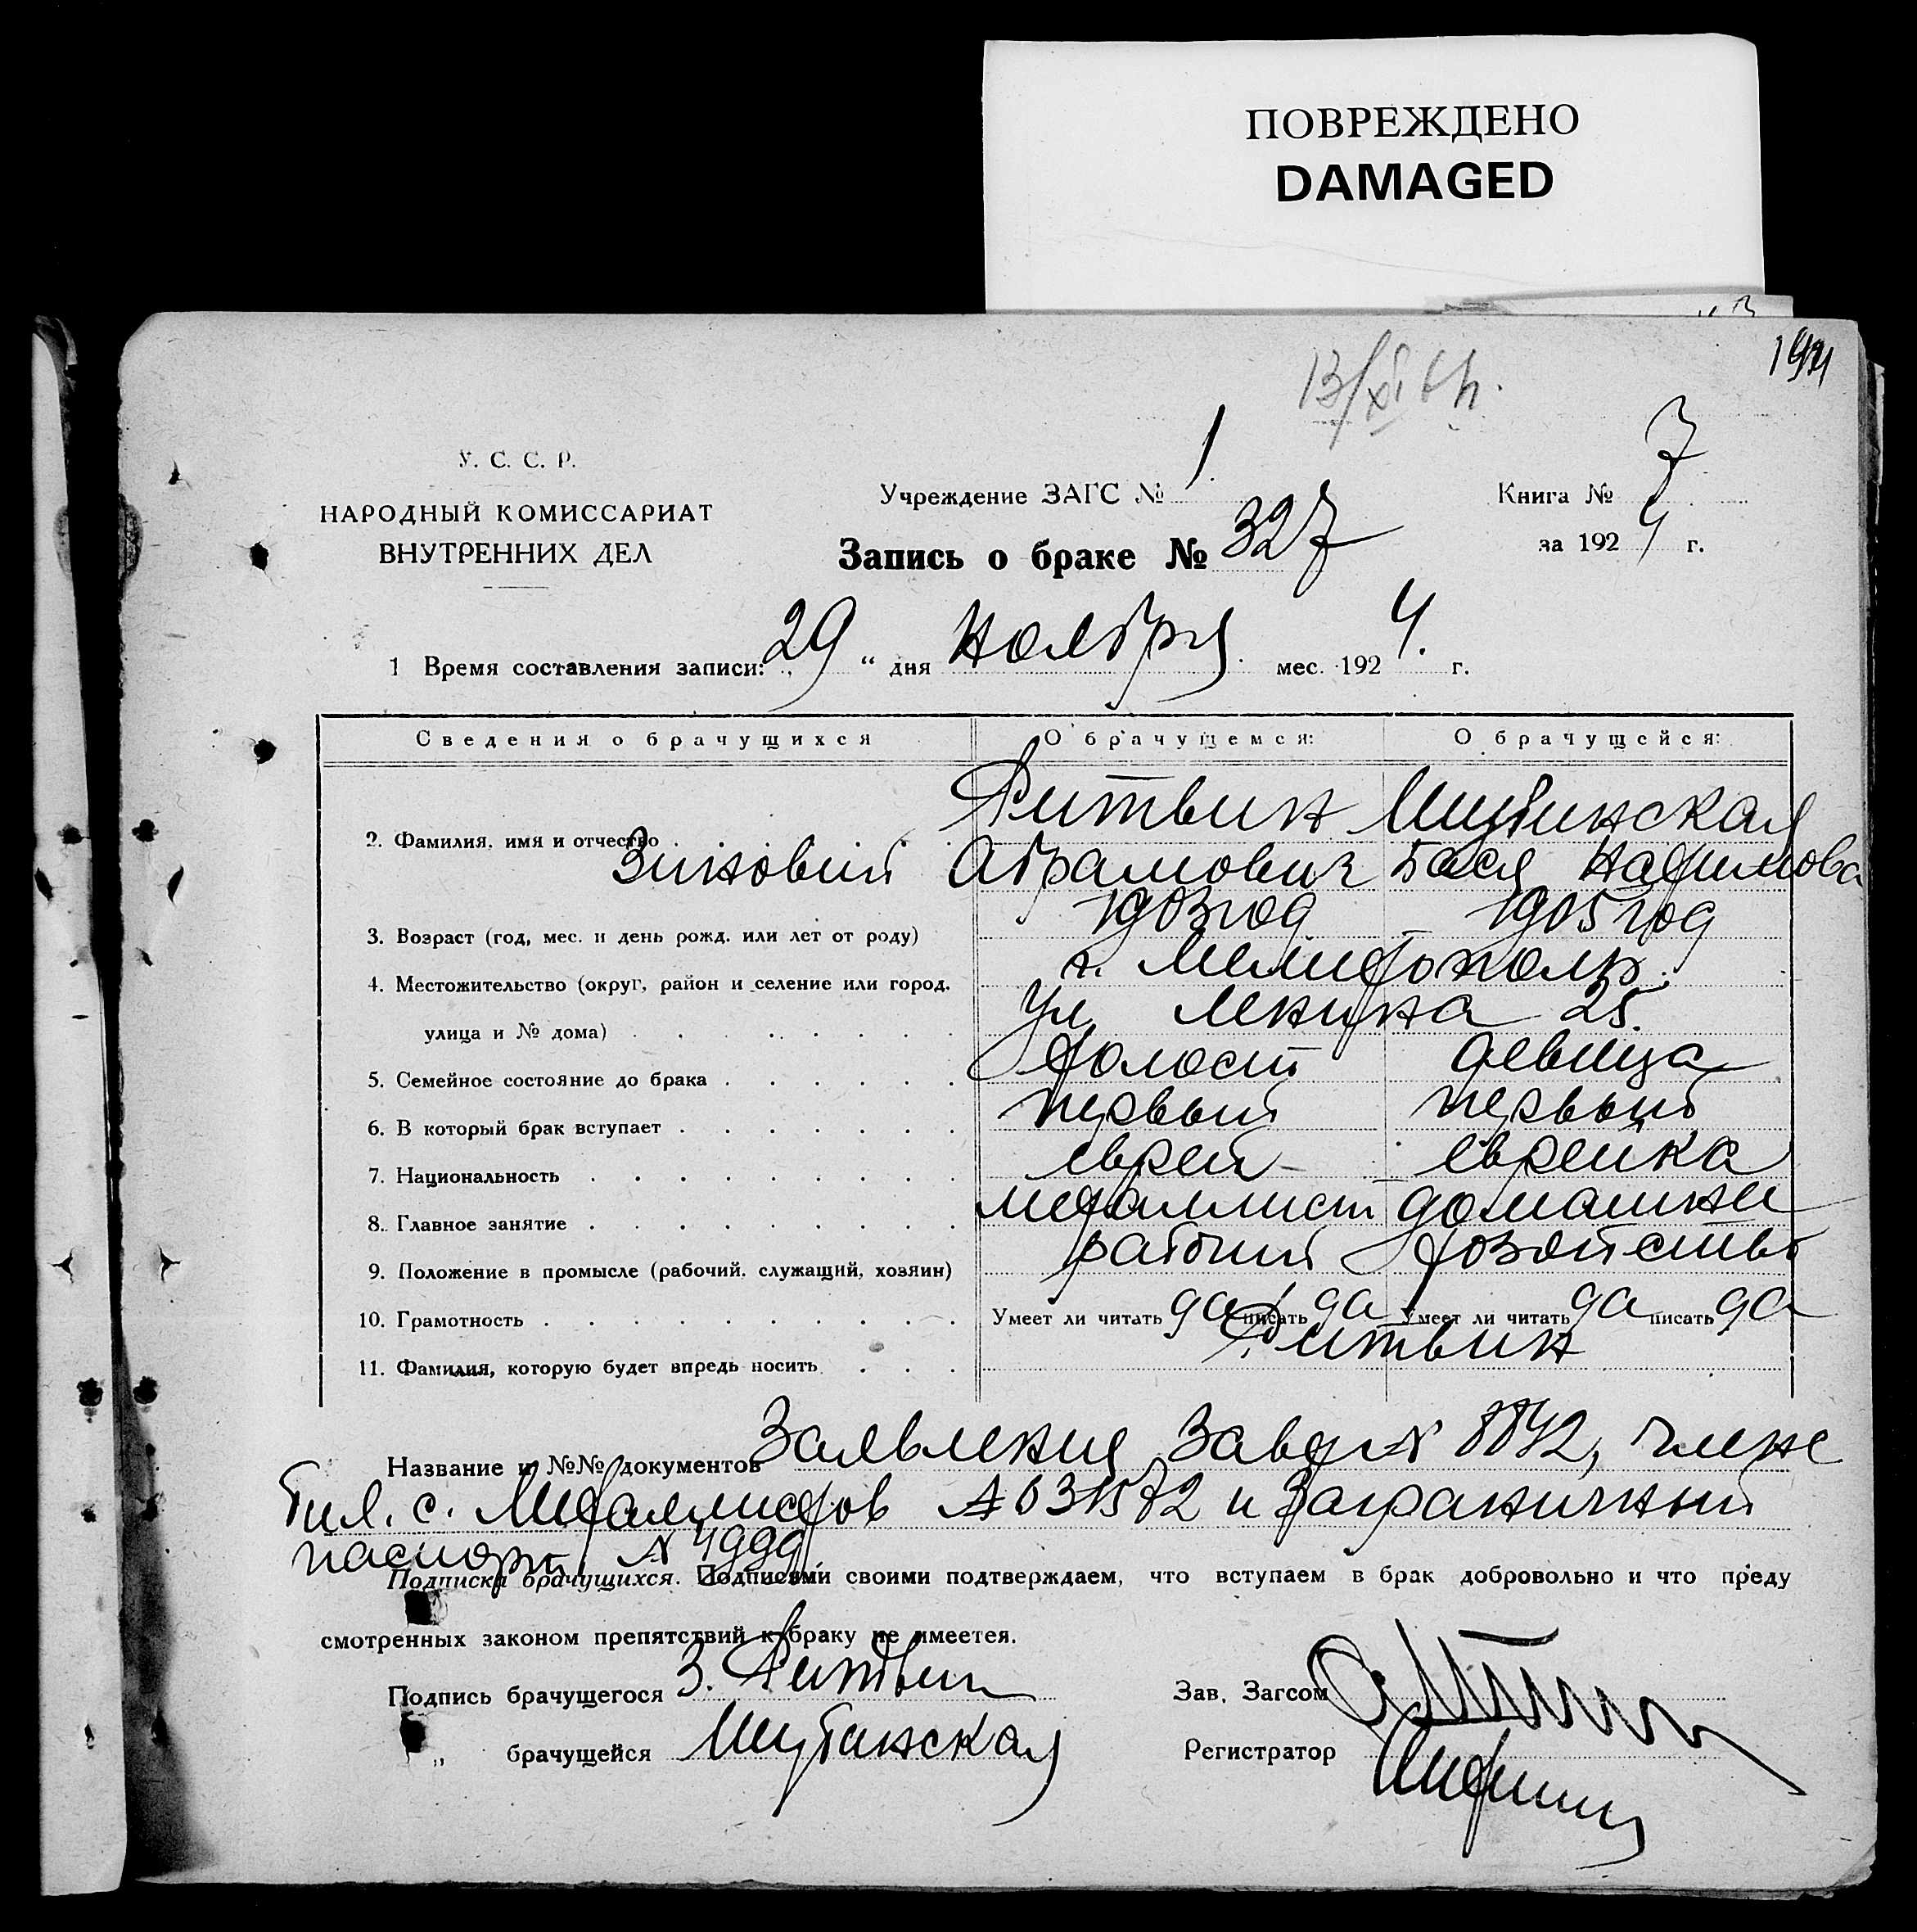 ПОВРЕЖДЕНО
DAMAGED
13/XI 6 ч.
У. С. С. Р.
НАРОДНЫЙ КОМИССАРИАТ
ВНУТРЕННИХ ДЕЛ
Учреждение ЗАГС № 1.
Книга № 7
за 1924 г.
Запись о браке № 327
1 Время составления записи: „29“ дня Ноября. мес. 1924. г.
Сведения о брачущихся О брачущемся: О брачущейся:
Литвин
2. Фамилия, имя и отчество
Зиновий Абрамович Бася
3. Возраст (год, мес. и день рожд. или лет от роду) 1903 год 1905 год
4. Местожительство (округ, район и селение или город, г. Мелитополь.
улица и № дома) ул Ленина 25.
5. Семейное состояние до брака холост девица
6. В который брак вступает первый первый
7. Национальность еврей еврейка
8. Главное занятие металлист домашнее
9. Положение в промысле (рабочий, служащий, хозяин) рабочий хозяйство
10. Грамотность Умеет ли читать да писать да Умеет ли читать да писать да
11. Фамилия, которую будет впредь носить Литвин
Название и №№ документов Заявление Завед N 8842, члене
бил. с. Металлистов № 631572 и Заграничный
паспорт N 4999
Подписка брачущихся. Подписями своими подтверждаем, что вступаем в брак добровольно и что преду
смотренных законом препятствий к браку не имеется.
Подпись брачущегося З. Литвин
Зав. Загсом
„ брачущейся Шубинская
Регистратор